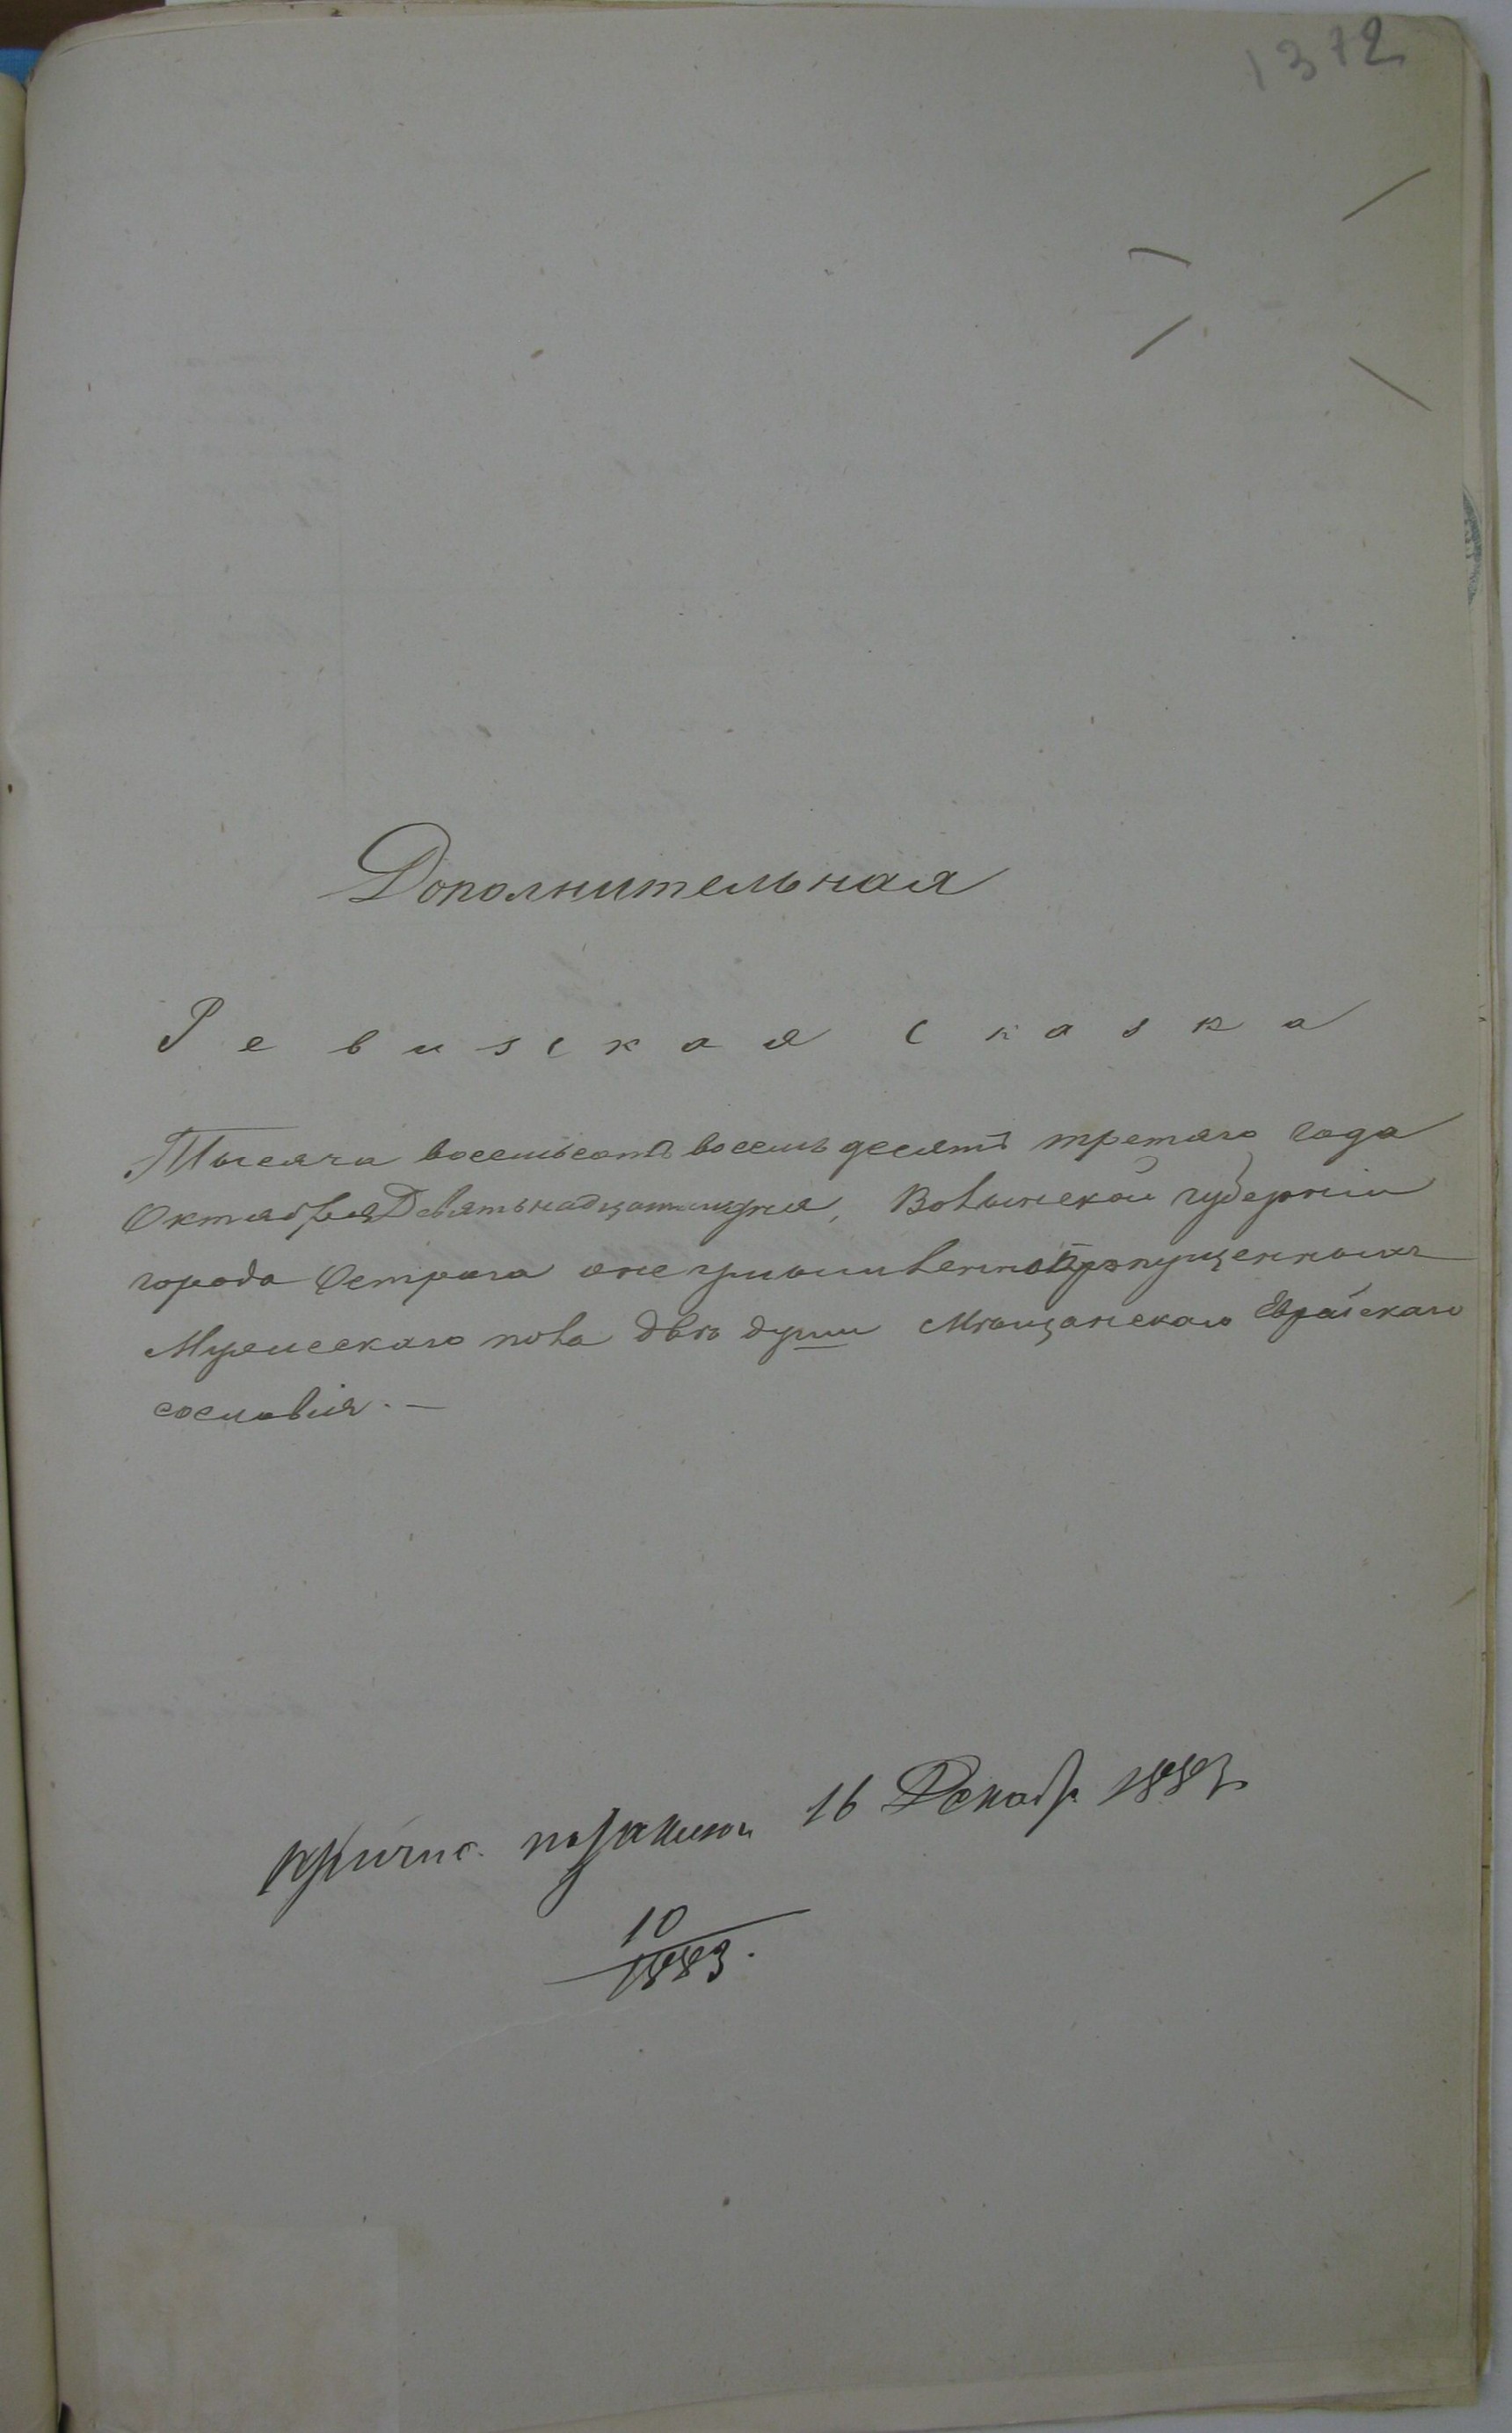 1372
Дополнительная
Ревизская сказка
Тысяча восемьсотъ восемь десятъ третяго года
Октября Девятьнадцатого дня, Волынской губерніи
города Острога о неумышленно пропущенныхъ
Мужескаго пола двѣ души Мѣщанскаго Еврейскаго
сословія. —
причис. 16 Декабр 1883
10
1883.